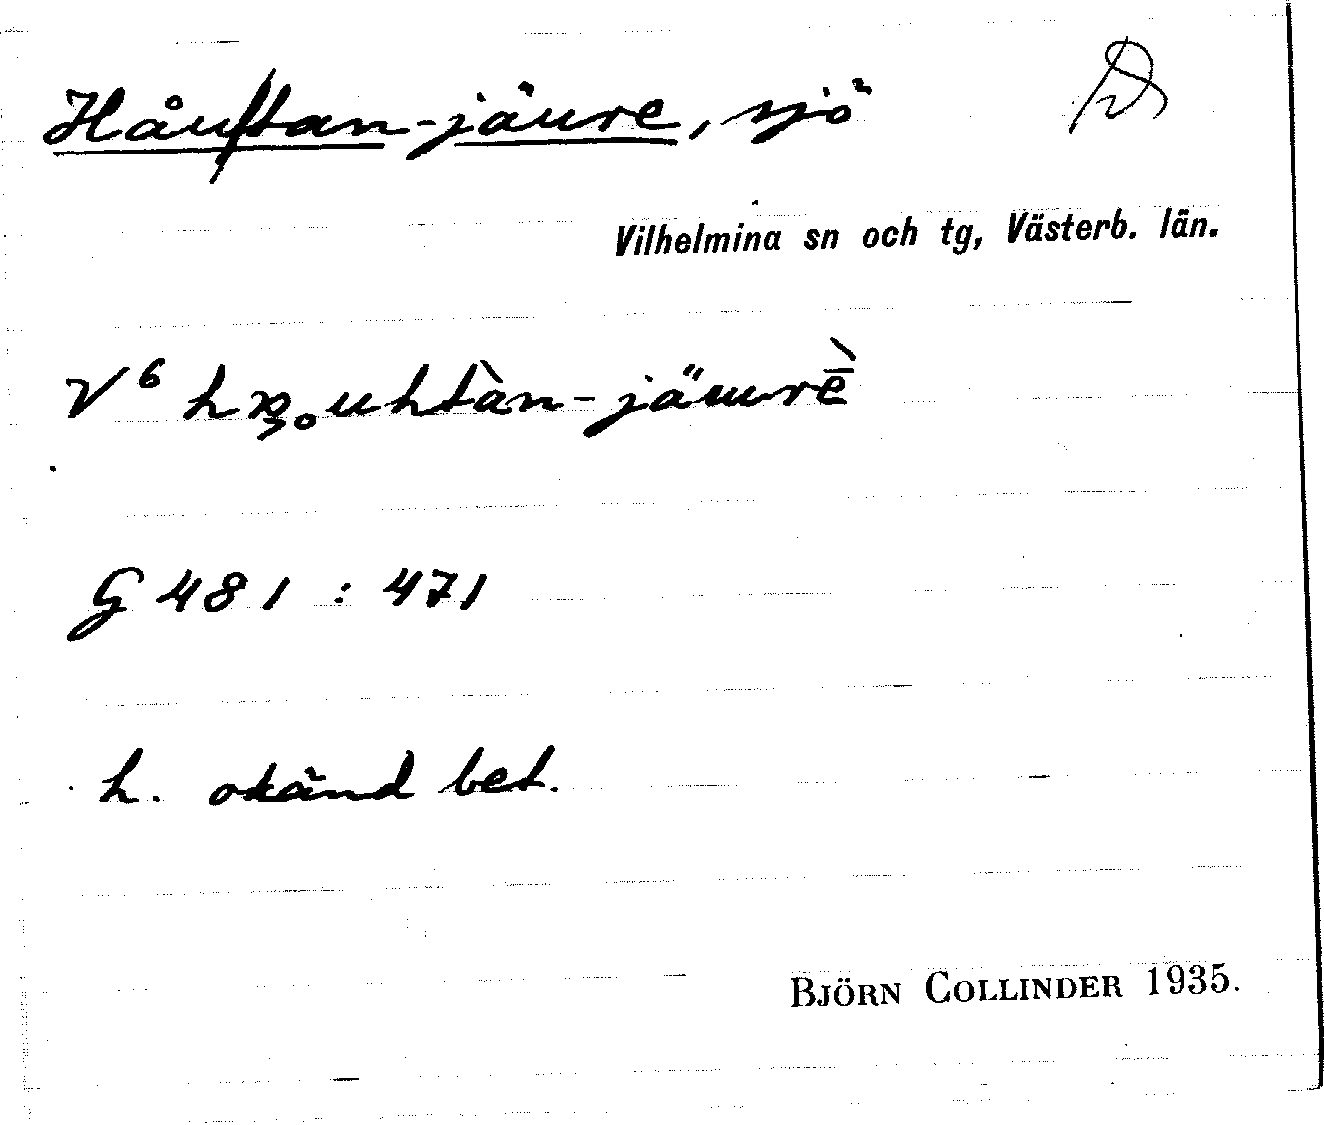 Håuftan-jäure, sjö
Vilhelmina sn och tg, Västerb. län.
V⁶ jäuurḕ
G 481 : 471
h. okänd bet.
BJÖRN COLLINDER 1935.